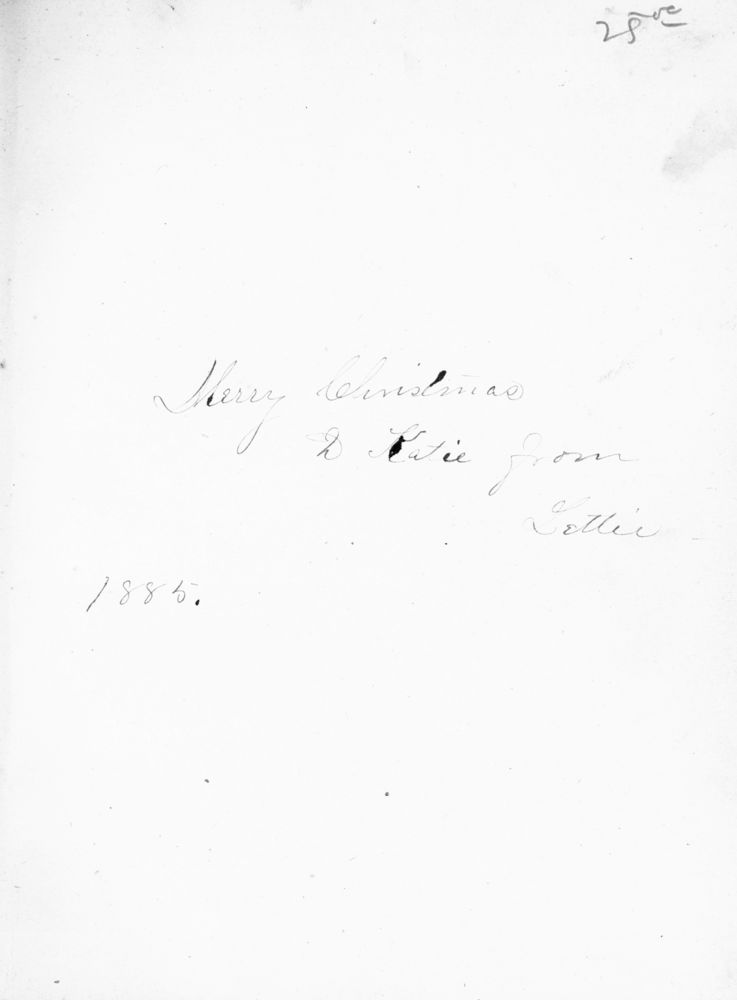 Merry Christmas
to Katie from
Lettie
1885.